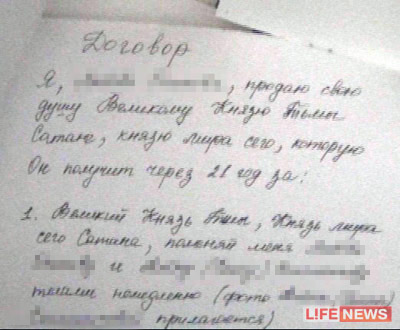 Договор
Я, , продаю свою
душу Великому Князю Тьмы
Сатане, князю мира сего, которую
Он получит через 21 год за:
1. Великий Князь Тьмы, Князь мира
сего Сатана, поменяй меня
и
телами немедленно (фото
прилагается)
LIFE NEWS